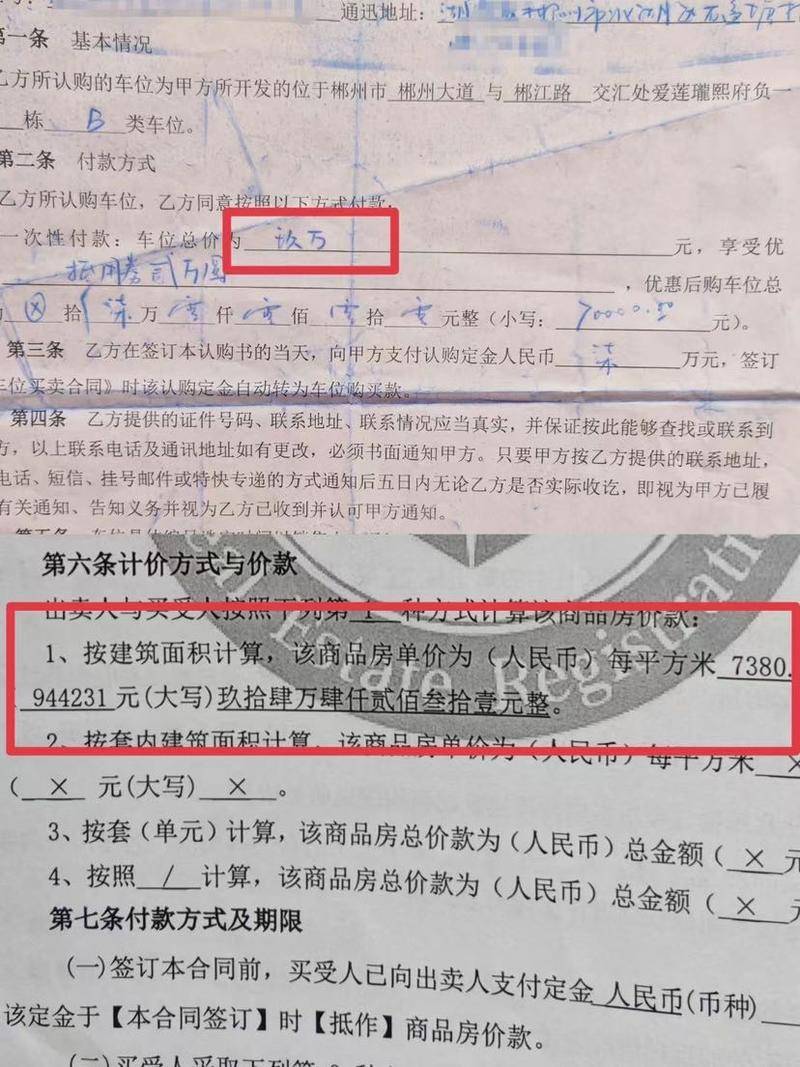 通迅地址：湖
第一条 基本情况
乙方所认购的车位为甲方所开发的位于郴州市 郴州大道 与 郴江路 交汇处爱莲瓏熙府负一
栋 B 类车位。
第二条 付款方式
乙方所认购车位，乙方同意按照以下方式付款：
一次性付款：车位总价为 玖万 元，享受优
抵用券贰万圆 ，优惠后购车位总
⊗ 拾 柒 万 零 仟 零 佰 零 拾 零 元整（小写： 70000.00 元）。
第三条 乙方在签订本认购书的当天，向甲方支付认购定金人民币 柒 万元，签订
车位买卖合同》时该认购定金自动转为车位购买款。
第四条 乙方提供的证件号码、联系地址、联系情况应当真实，并保证按此能够查找或联系到
方，以上联系电话及通讯地址如有更改，必须书面通知甲方。只要甲方按乙方提供的联系地址，
电话、短信、挂号邮件或特快专递的方式通知后五日内无论乙方是否实际收讫，即视为甲方已履
有关通知、告知义务并视为乙方已收到并认可甲方通知。
第六条计价方式与价款
出卖人与买受人按照下列第 1 种方式计算该商品房价款：
1、按建筑面积计算，该商品房单价为（人民币）每平方米 7380.
944231 元(大写)玖拾肆万肆仟贰佰叁拾壹元整。
2、按套内建筑面积计算，该商品房单价为（人民币）每平方米 ×
（ × 元(大写) × 。
3、按套（单元）计算，该商品房总价款为（人民币）总金额（ × 元
4、按照 / 计算，该商品房总价款为（人民币）总金额（ × 元
第七条付款方式及期限
(一)签订本合同前，买受人已向出卖人支付定金 人民币(币种)
该定金于【本合同签订】时【抵作】商品房价款。
Estate Registrati